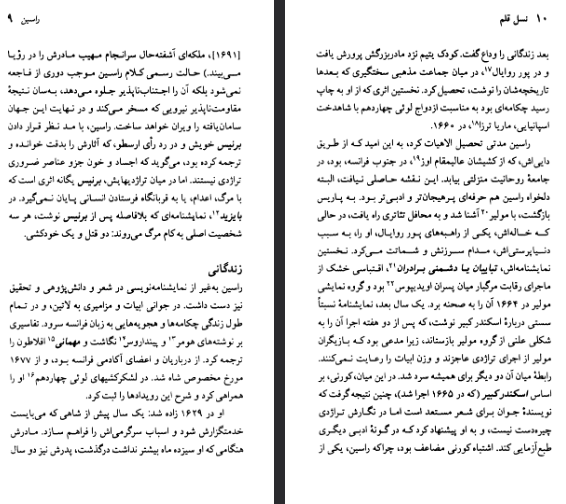 راسین ۹
[۱۶۹۱]، ملکه‌ای آشفته‌حال سرانجام مهیب مادرش را در رؤیا
می‌بیند.) حالت رسمی کلام راسین موجب دوری از فاجعه
نمی‌شود بلکه آن را اجتناب‌ناپذیر جلوه می‌دهد، به‌سان نتیجهٔ
مقاومت‌ناپذیر نیرویی که مسخر می‌کند و در نهایت این جهان
سامان‌یافته را ویران خواهد ساخت. راسین، با مد نظر قرار دادن
برنیس خویش و در رد رأی ارسطو، که آثارش را بدقت خوانده و
ترجمه کرده بود، می‌گوید که اجساد و خون جزو عناصر ضروری
تراژدی نیستند. اما در میان تراژدیهایش، برنیس یگانه اثری است که
با مرگ، اعدام، یا به قربانگاه فرستادن انسانی پایان نمی‌گیرد. در
بایزید۱۲، نمایشنامه‌ای که بلافاصله پس از برنیس نوشت، هر سه
شخصیت اصلی به کام مرگ می‌روند: دو قتل و یک خودکشی.
زندگانی
راسین به‌غیر از نمایشنامه‌نویسی در شعر و دانش‌پژوهی و تحقیق
نیز دست داشت. در جوانی ابیات و مزامیری به لاتین، و در تمام
طول زندگی چکامه‌ها و هجویه‌هایی به زبان فرانسه سرود. تفاسیری
بر نوشته‌های هومر۱۳ و پینداروس۱۴ نگاشت و مهمانی۱۵ افلاطون را
ترجمه کرد. از درباریان و اعضای آکادمی فرانسه بود، و از ۱۶۷۷
مورخ مخصوص شاه شد. در لشکرکشیهای لوئی چهاردهم۱۶ او را
همراهی کرد و شرح این رویدادها را ثبت کرد.
او در ۱۶۳۹ زاده شد: یک سال پیش از شاهی که می‌بایست
خدمتگزارش شود و اسباب سرگرمی‌اش را فراهم سازد. مادرش
هنگامی که او سیزده ماه بیشتر نداشت درگذشت، پدرش نیز دو سال
۱۰ نسل قلم
بعد زندگانی را وداع گفت. کودک یتیم نزد مادربزرگش پرورش یافت
و در پور روایال۱۷، در میان جماعت مذهبی سختگیری که بعدها
تاریخچه‌شان را نوشت، تحصیل کرد. نخستین اثری که از او به چاپ
رسید چکامه‌ای بود به مناسبت ازدواج لوئی چهاردهم با شاهدخت
اسپانیایی، ماریا ترزا۱۸، در ۱۶۶۰.
راسین مدتی تحصیل الاهیات کرد، به این امید که از طریق
دایی‌اش، که از کشیشان عالیمقام اوز۱۹، در جنوب فرانسه، بود، در
جامعهٔ روحانیت منزلتی بیابد. این نقشه حاصلی نیافت، البته
دلخواه راسین هم حرفه‌ای پرهیجان‌تر و ادبی‌تر بود. به پاریس
بازگشت، با مولیر۲۰ آشنا شد و به محافل تئاتری راه یافت، در حالی
که خاله‌اش، یکی از راهبه‌های پور روایال، او را، به سبب
دنیاپرستی‌اش، مدام سرزنش و شماتت می‌کرد. نخستین
نمایشنامه‌اش، تبایبان یا دشمنی برادران۲۱، اقتباسی خشک از
ماجرای رقابت مرگبار میان پسران اویدیپوس۲۲ بود و گروه نمایشی
مولیر در ۱۶۶۴ آن را به صحنه برد. یک سال بعد، نمایشنامهٔ نسبتاً
سستی دربارهٔ اسکندر کبیر نوشت، که پس از دو هفته اجرا آن را به
شکلی علنی از گروه مولیر بازستاند، زیرا مدعی بود که بازیگران
مولیر از اجرای تراژدی عاجزند و وزن ابیات را رعایت نمی‌کنند.
رابطهٔ میان آن دو دیگر برای همیشه سرد شد. در این میان، کورنی، بر
اساس اسکندر کبیر (که در ۱۶۶۵ اجرا شد)، چنین نتیجه گرفت که
نویسندهٔ جوان برای شعر مستعد است اما در نگارش تراژدی
چیره‌دست نیست، و به او پیشنهاد کرد که در گونهٔ ادبی دیگری
طبع‌آزمایی کند. اشتباه کورنی مضاعف بود، چراکه راسین، یکی از